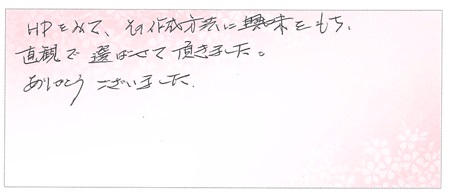 HPをみて、その作成方法に興味をもち、
直観で選ばせて頂きました。
ありがとうございました.